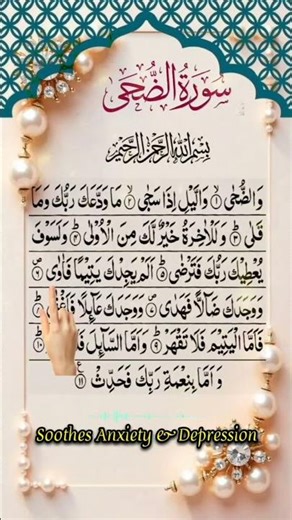 سُورَةُ الضُّحَى
بِسْمِ اللهِ الرَّحْمٰنِ الرَّحِيْمِ
وَالضُّحٰى ۙ۱ وَالَّيْلِ اِذَا سَجٰى ۙ۲ مَا وَدَّعَكَ رَبُّكَ وَمَا
قَلٰى ؕ۳ وَلَلْاٰخِرَةُ خَيْرٌ لَّكَ مِنَ الْاُوْلٰى ؕ۴ وَلَسَوْفَ
يُعْطِيْكَ رَبُّكَ فَتَرْضٰى ؕ۵ اَلَمْ يَجِدْكَ يَتِيْمًا فَاٰوٰى ۪۶
وَوَجَدَكَ ضَآلًّا فَهَدٰى ۪۷ وَوَجَدَكَ عَآئِلًا فَاَغْنٰى ؕ۸
فَاَمَّا الْيَتِيْمَ فَلَا تَقْهَرْ ؕ۹ وَاَمَّا السَّآئِلَ فَلَا ۱۰
وَاَمَّا بِنِعْمَةِ رَبِّكَ فَحَدِّثْ ۱۱
Soothes Anxiety & Depression